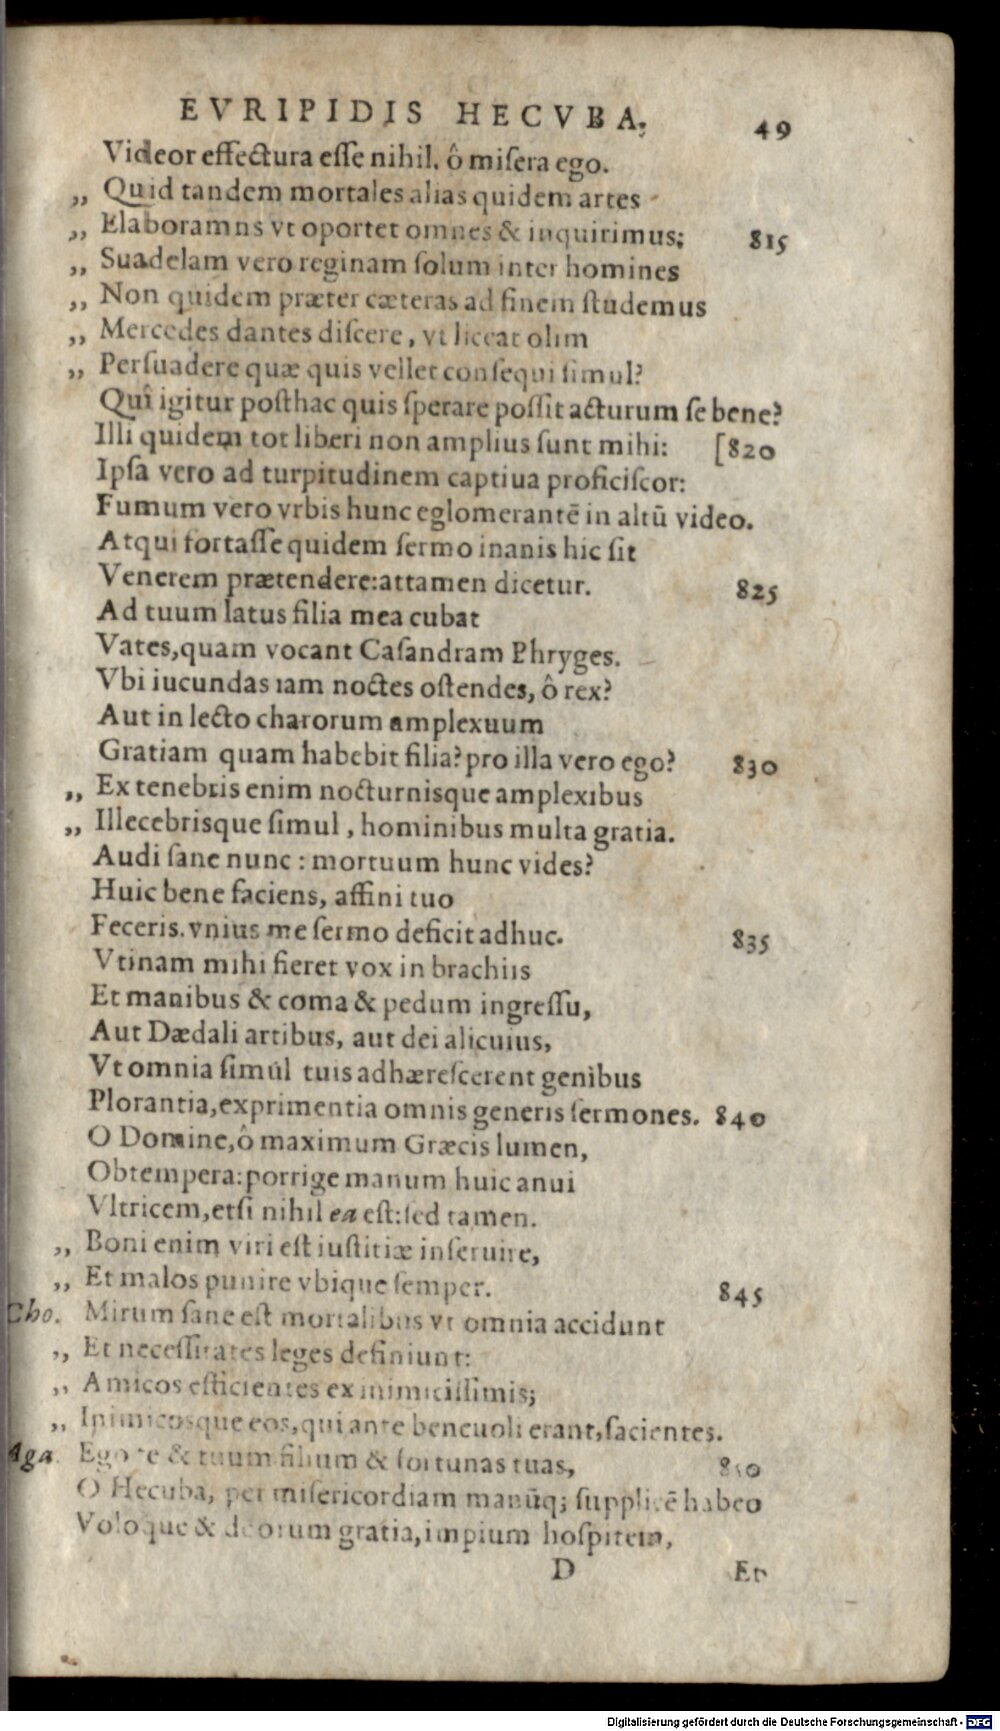 EVRIPIDIS HECVBA. 49
Videor effectura eſſe nihil. ô miſera ego.
„ Quid tandem mortales alias quidem artes
„ Elaboramns vt oportet omnes & inquirimus; 815
„ Suadelam vero reginam ſolum inter homines
„ Non quidem præter cæteras ad finem ſtudemus
„ Mercedes dantes diſcere, vt liceat olim
„ Perſuadere quæ quis vellet conſequi ſimul?
Quî igitur poſthac quis ſperare poſſit acturum ſe bene?
Illi quidem tot liberi non amplius ſunt mihi: [820
Ipſa vero ad turpitudinem captiua proficiſcor:
Fumum vero vrbis hunc eglomerantē in altū video.
Atqui fortaſſe quidem ſermo inanis hic ſit
Venerem prætendere:attamen dicetur. 825
Ad tuum latus filia mea cubat
Vates,quam vocant Caſandram Phryges.
Vbi iucundas iam noctes oſtendes, ô rex?
Aut in lecto charorum amplexuum
Gratiam quam habebit filia?pro illa vero ego? 830
„ Ex tenebris enim nocturnisque amplexibus
„ Illecebrisque ſimul, hominibus multa gratia.
Audi ſane nunc : mortuum hunc vides?
Huic bene faciens, affini tuo
Feceris. vnius me ſermo deficit adhuc. 835
Vtinam mihi fieret vox in brachiis
Et manibus & coma & pedum ingreſſu,
Aut Dædali artibus, aut dei alicuius,
Vt omnia ſimul tuis adhæreſcerent genibus
Plorantia,exprimentia omnis generis ſermones. 840
O Domine,ô maximum Græcis lumen,
Obtempera:porrige manum huic anui
Vltricem,etſi nihil ea eſt:ſed tamen.
„ Boni enim viri eſt iuſtitiæ inſeruire,
„ Et malos punire vbique ſemper. 845
Cho. Mirum ſane eſt mortalibus vt omnia accidunt
„ Et neceſſitates leges definiunt:
„ Amicos efficientes ex inimiciſſimis;
„ Inimicosque eos,qui ante beneuoli erant,facientes.
Aga. Ego te & tuum filium & fortunas tuas, 850
O Hecuba, per miſericordiam manūq; ſupplicē habeo
Voloque & deorum gratia,impium hoſpitem,
D Et
Digitalisierung gefördert durch die Deutsche Forschungsgemeinschaft - DFG